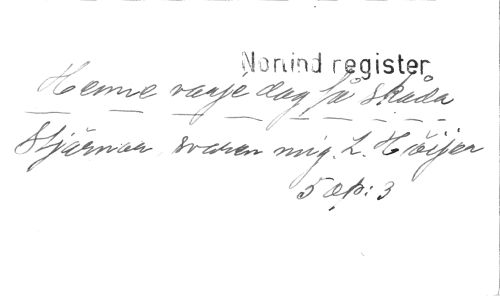 Nonind register
Henne varje dag få skåda
Stjärnor svaren mig. L. Höijer
5 op: 3